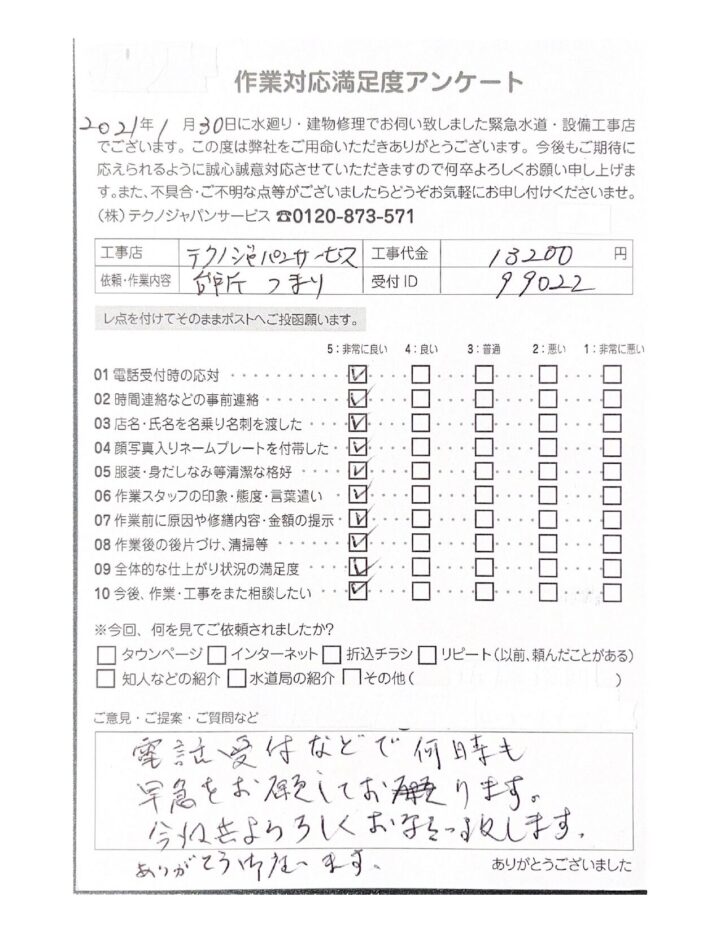 作業対応満足度アンケート
2021年1月30日に水廻り・建物修理でお伺い致しました緊急水道・設備工事店
でございます。この度は弊社をご用命いただきありがとうございます。今後もご期待に
応えられるように誠心誠意対応させていただきますので何卒よろしくお願い申し上げま
す。また、不具合・ご不明な点等がございましたらどうぞお気軽にお申し付けくださいませ。
(株)テクノジャパンサービス ☎0120-873-571
工事店 テクノジャパンサービス 工事代金 13200 円
依頼・作業内容 台所 つまり 受付ID 99022
レ点を付けてそのままポストへご投函願います。
5:非常に良い 4:良い 3:普通 2:悪い 1:非常に悪い
01 電話受付時の応対
02 時間連絡などの事前連絡
03 店名・氏名を名乗り名刺を渡した
04 顔写真入りネームプレートを付帯した
05 服装・身だしなみ等清潔な格好
06 作業スタッフの印象・態度・言葉遣い
07 作業前に原因や修繕内容・金額の提示
08 作業後の後片づけ、清掃等
09 全体的な仕上がり状況の満足度
10 今後、作業・工事をまた相談したい
※今回、何を見てご依頼されましたか?
タウンページ インターネット 折込チラシ リピート(以前、頼んだことがある)
知人などの紹介 水道局の紹介 その他( )
ご意見・ご提案・ご質問など
電話受付などで何時も
早急をお願してお ります。
よろしくお 致します。
ありがとう御座います。
ありがとうございました